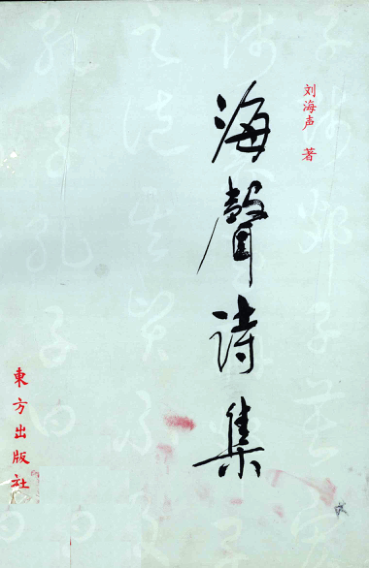 刘海声 著
海聲詩集
東方出版社